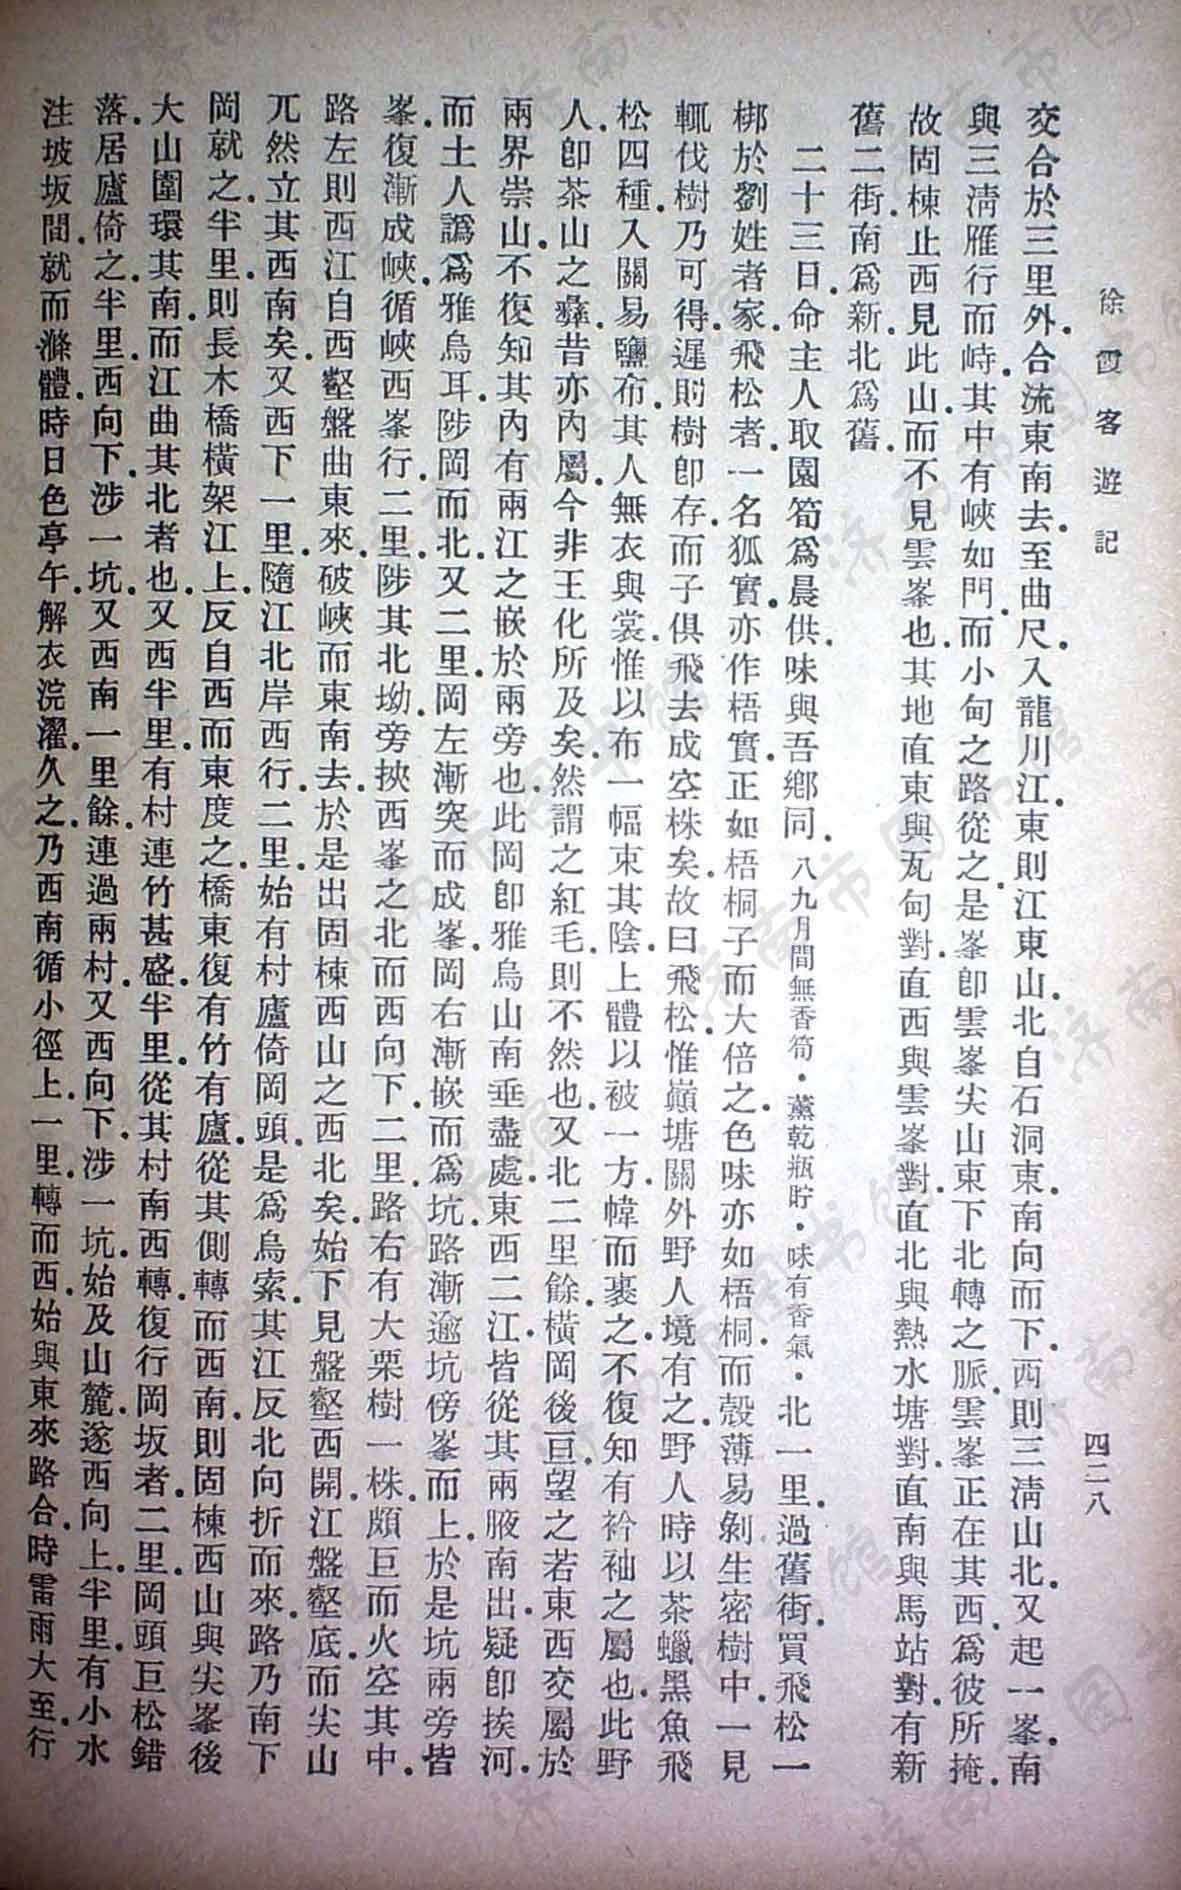 徐霞客遊記
四二八
交合於三里外．合流東南去．至曲尺．入龍川江．東則江東山．北自石洞東．南向而下．西則三淸山北．又起一峯．南
與三淸雁行而峙．其中有峽如門．而小甸之路從之．是峯卽雲峯尖山東下北轉之脈．雲峯正在其西．爲彼所掩．
故固棟止西見此山．而不見雲峯也．其地直東與瓦甸對．直西與雲峯對．直北與熱水塘對．直南與馬站對．有新
舊二街．南爲新．北爲舊．
二十三日．命主人取園筍爲晨供．味與吾鄕同．八九月間無香筍．薰乾瓶貯．味有香氣．北一里．過舊街．買飛松一
梆於劉姓者家．飛松者．一名狐實．亦作梧實．正如梧桐子而大倍之．色味亦如梧桐．而殼薄易剝．生密樹中．一見
輒伐樹乃可得．遲則樹卽存．而子俱飛去成空株矣．故曰飛松．惟巓塘關外野人境有之．野人時以茶蠟黑魚飛
松四種．入關易鹽布．其人無衣與裳．惟以布一幅束其陰．上體以被一方幃而裹之．不復知有衿袖之屬也．此野
人．卽茶山之彝．昔亦內屬．今非王化所及矣．然謂之紅毛．則不然也．又北二里餘．橫岡後亘．望之若東西交屬於
兩界崇山．不復知其內有兩江之嵌於兩旁也．此岡卽雅烏山南垂盡處．東西二江．皆從其兩腋南出．疑卽挨河．
而土人譌爲雅烏耳．陟岡而北．又二里．岡左漸突而成峯．岡右漸嵌而爲坑．路漸逾坑傍峯而上．於是坑兩旁皆
峯．復漸成峽．循峽西峯行．二里．陟其北坳．旁挾西峯之北而西向下．二里．路右有大栗樹一株．頗巨而火空其中．
路左則西江自西壑盤曲東來．破峽而東南去．於是出固棟西山之西北矣．始下見盤壑西開．江盤壑底．而尖山
兀然立其西南矣．又西下一里．隨江北岸西行．二里．始有村廬倚岡頭．是爲烏索．其江反北向折而來．路乃南下
岡就之．半里．則長木橋橫架江上．反自西而東度之．橋東復有竹有廬．從其側轉而西南．則固棟西山與尖峯後
大山圍環其南．而江曲其北者也．又西半里．有村連竹甚盛．半里．從其村南西轉．復行岡坂者．二里．岡頭巨松錯
落．居廬倚之．半里．西向下．涉一坑．又西南一里餘．連過兩村．又西向下．涉一坑．始及山麓．遂西向上．半里．有小水
注坡坂間．就而滌體．時日色亭午．解衣浣濯．久之．乃西南循小徑上．一里．轉而西．始與東來路合．時雷雨大至．行